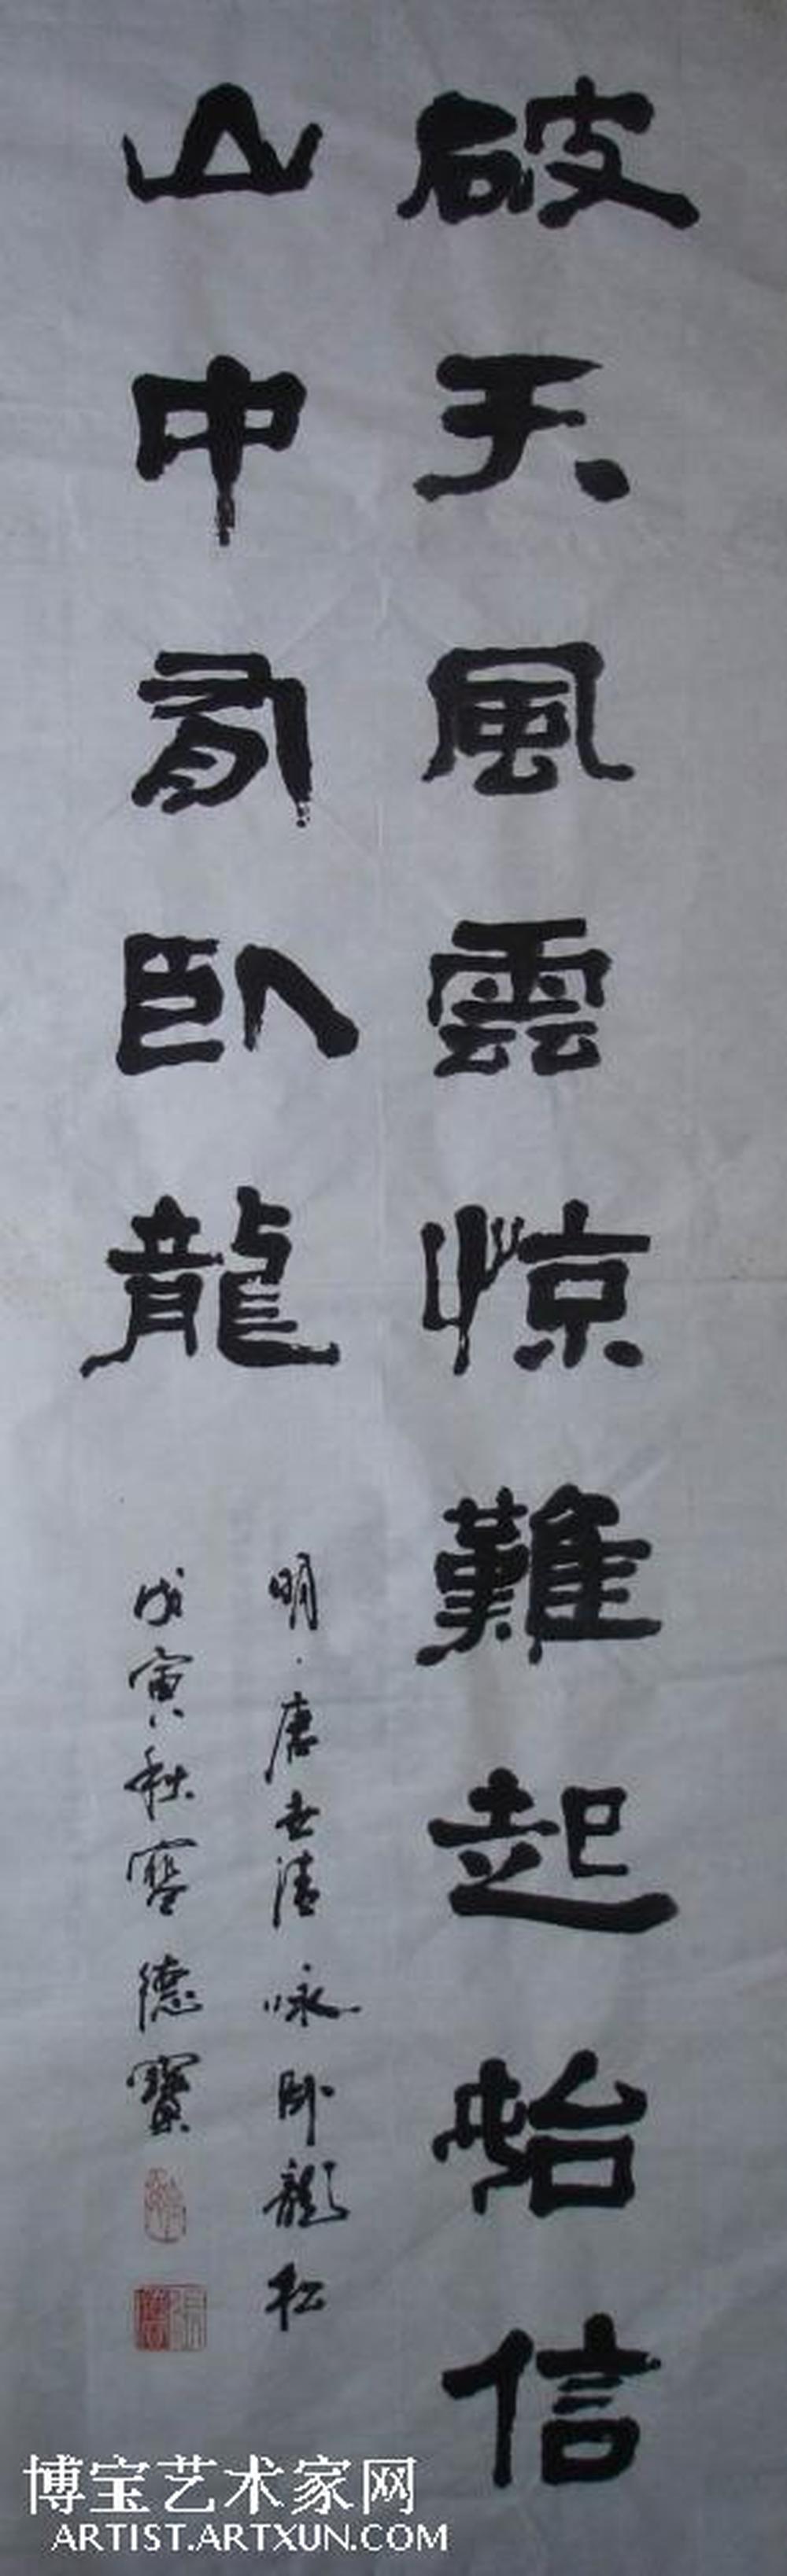 破天風雲惊難起始信
山中有卧龍
明·唐世清咏卧龍松
戊寅秋寒德寳
博宝艺术家网
ARTIST.ARTXUN.COM